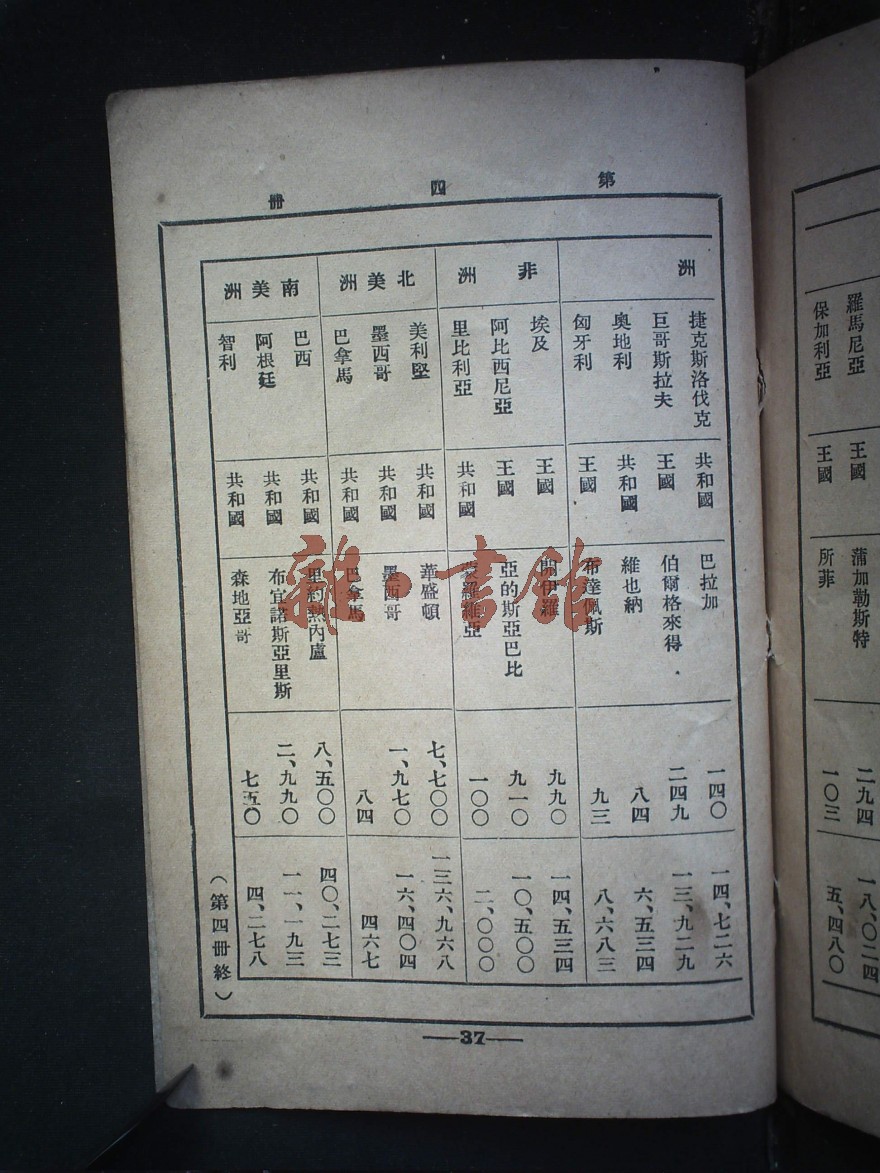 羅馬尼亞 王國 蒲加勒斯特 二九四 一八、〇二四
保加利亞 王國 所菲 一〇三 五、四八〇
第四冊
洲
捷克斯洛伐克 共和國 巴拉加 一四〇 一四、七二六
巨哥斯拉夫 王國 伯爾格來得 二四九 一三、九二九
奧地利 共和國 維也納 八四 六、五三四
匈牙利 王國 布達佩斯 九三 八、六八三
非洲
埃及 王國 開伊羅 九九〇 一四、五三四
阿比西尼亞 王國 亞的斯亞巴比 九一〇 一〇、五〇〇
里比利亞 共和國 一〇〇 二、〇〇〇
北美洲
美利堅 共和國 華盛頓 七、七〇〇 一三六、九六八
墨西哥 共和國 墨西哥 一、九七〇 一六、四〇四
巴拿馬 共和國 巴拿馬 八四 四六七
南美洲
巴西 共和國 里約熱內盧 八、五〇〇 四〇、二七三
阿根廷 共和國 布宜諾斯亞里斯 二、九九〇 一一、一九三
智利 共和國 森地亞哥 七五〇 四、二七八
（第四冊終）
37
雜·書館